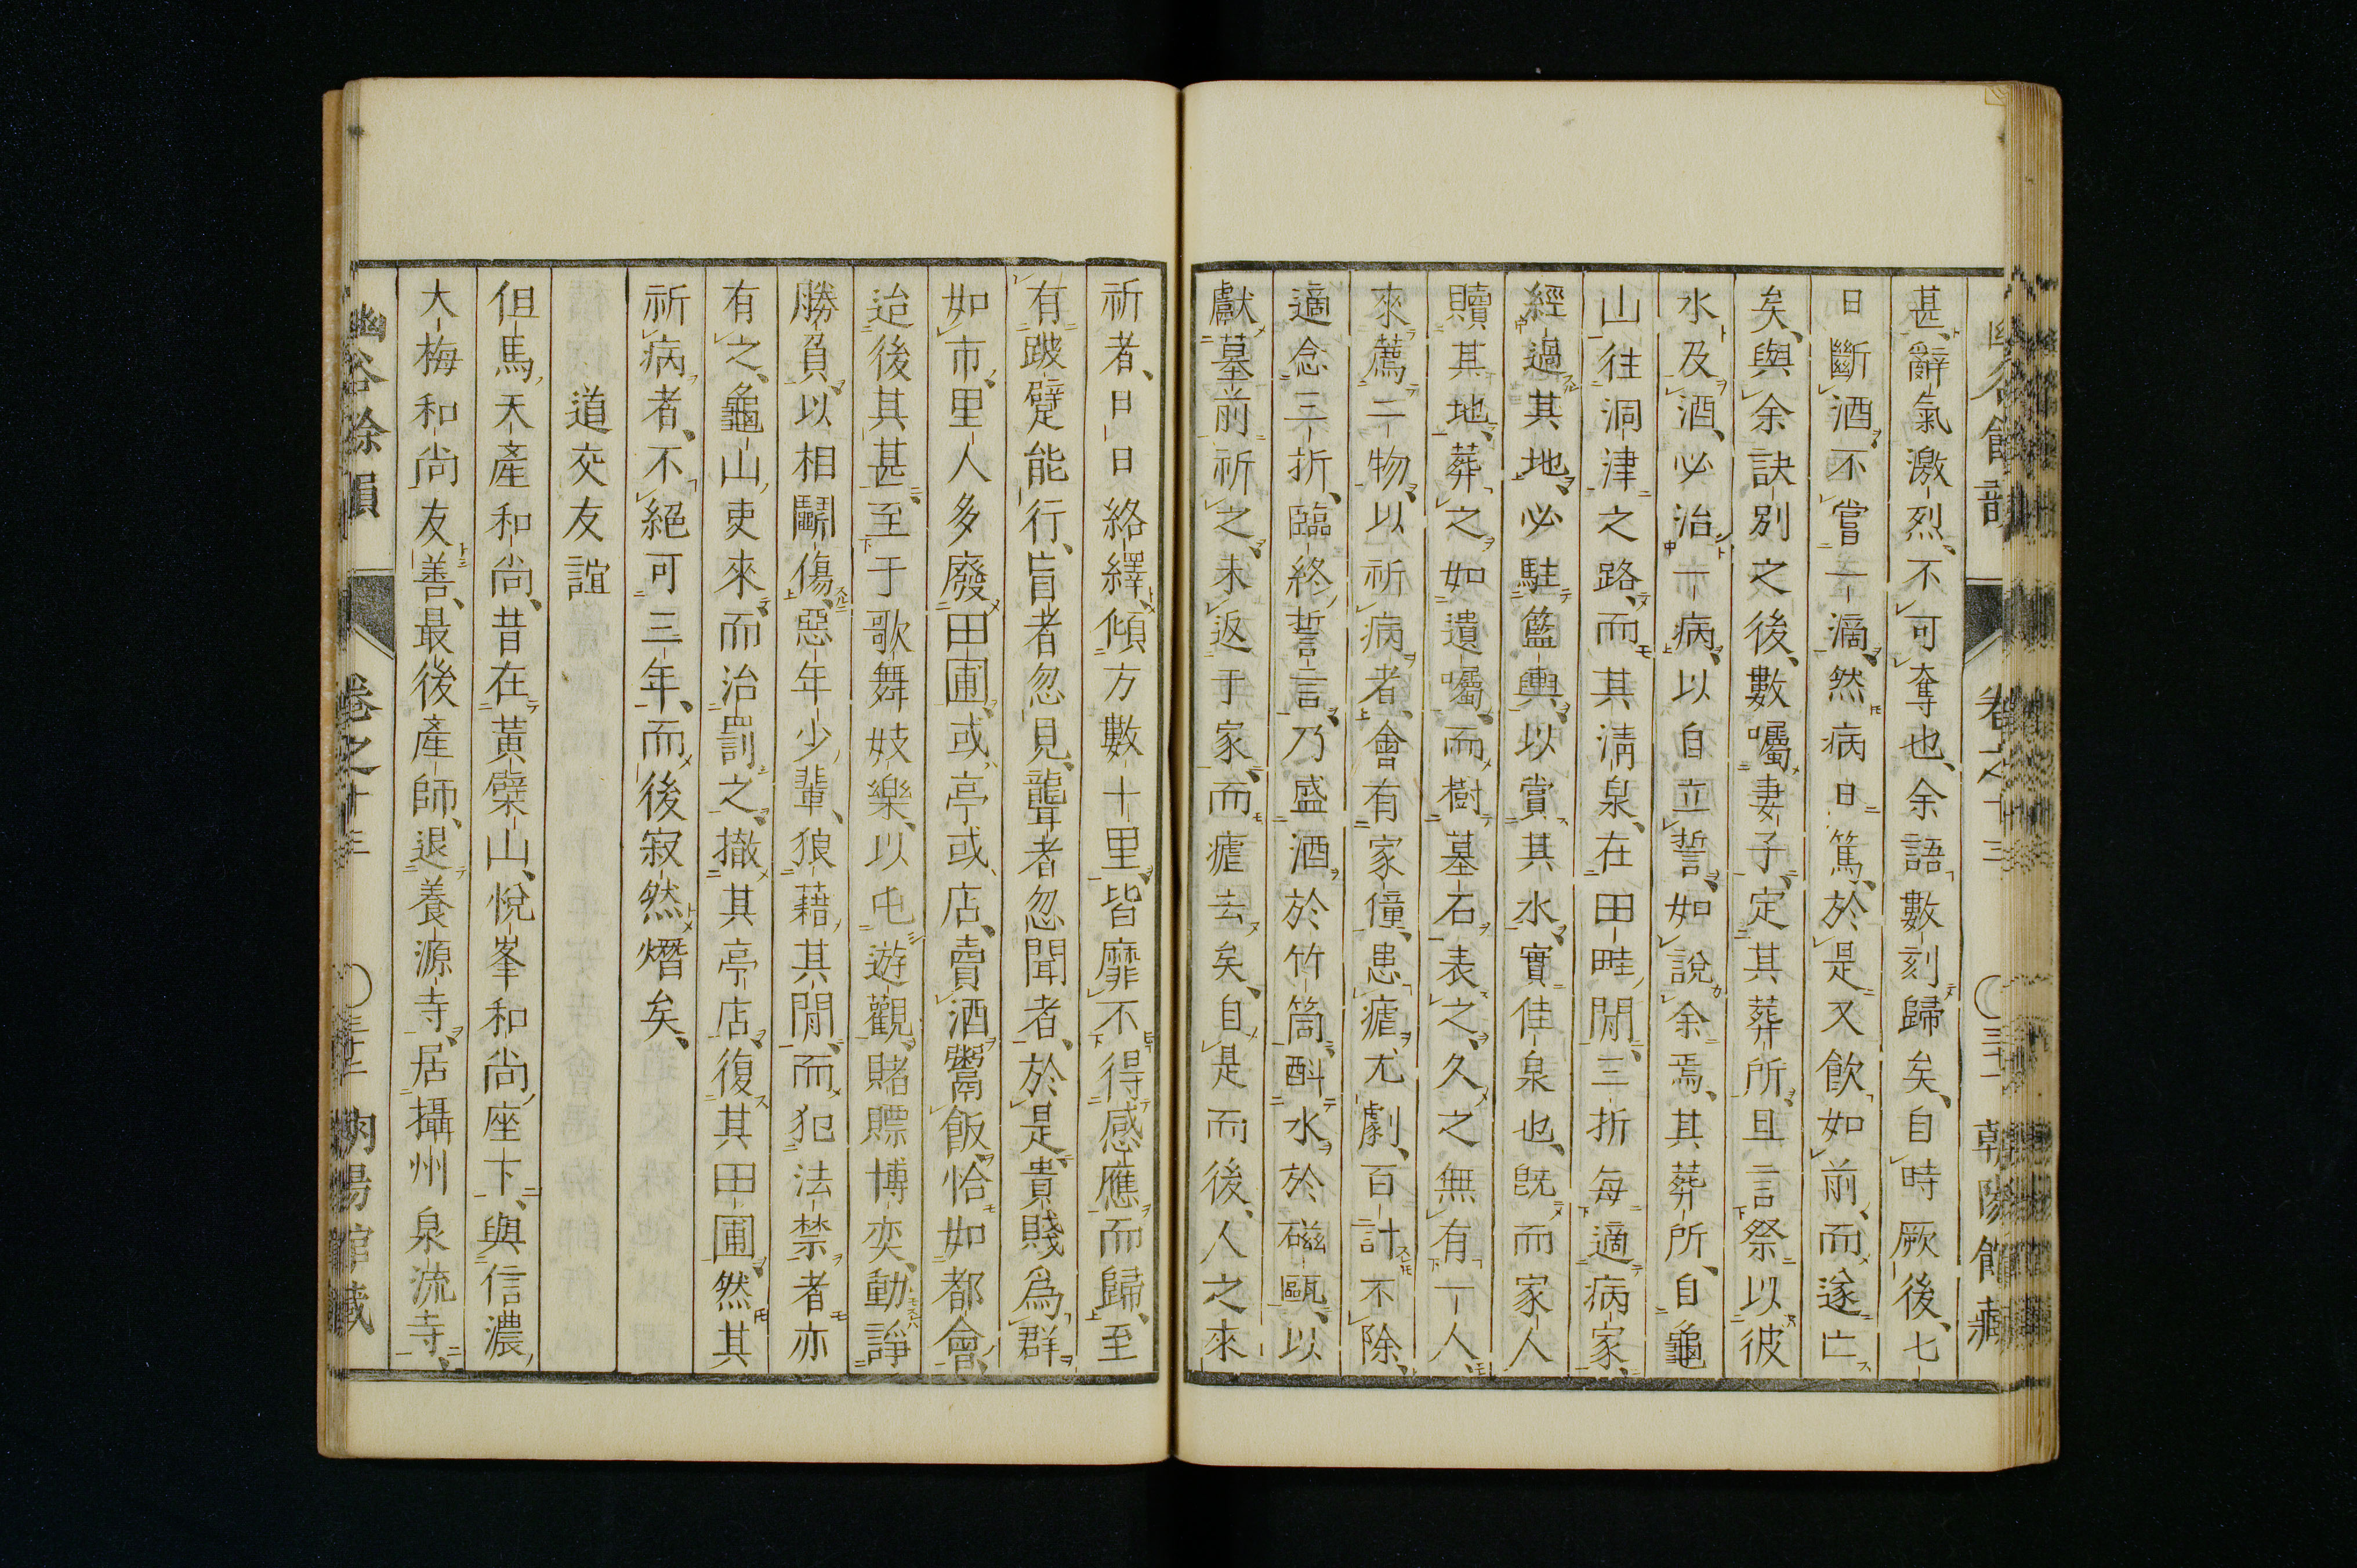 甚、辭氣激烈、不可奪也、余語數刻歸矣、自時厥後、七
日斷酒不嘗一滴、然病日篤、於是又飲如前、而遂亡
矣、與余訣別之後、數囑妻子、定其葬所、且言祭以彼
水及酒、必治一病、以自立誓、如說余焉、其葬所、自龜
山往洞津之路、而其淸泉、在田畦間、三折每適病家、
經過其地、必駐籃輿、以賞其水、實佳泉也、旣而家人
贖其地、葬之如遺囑、而樹墓石表之、久之無有一人、
來薦二物、以祈病者、會有家僮、患瘧、尤劇、百計不除、
適念三折、臨終誓言、乃盛酒於竹筒、酙水於磁甌、以
獻墓前祈之、未返于家、而瘧去矣、自是而後、人之來
祈者、日日絡繹、傾方數十里、皆靡不得感應而歸、至
有跛躄能行、盲者忽見、聾者忽聞者、於是貴賤爲群
如市、里人多廢田圃、或亭或店、賣酒鬻飯、恰如都會、
迨後其甚、至于歌舞妓樂、以屯遊觀、賭賻博奕、動諍
勝負、以相鬪傷、惡年少輩、狼藉其間、而犯法禁者亦
有之、龜山吏來而治罰之、撤其亭店、復其田圃、然其
祈病者、不絕可三年、而後寂然熸矣、
道交友誼
但馬天產和尙、昔在黃檗山、悅峯和尙座下、與信濃
大梅和尙友善、最後產師、退養源寺、居攝州泉流寺、
幽谷餘韻 卷之十三 〇三十二 朝陽館藏